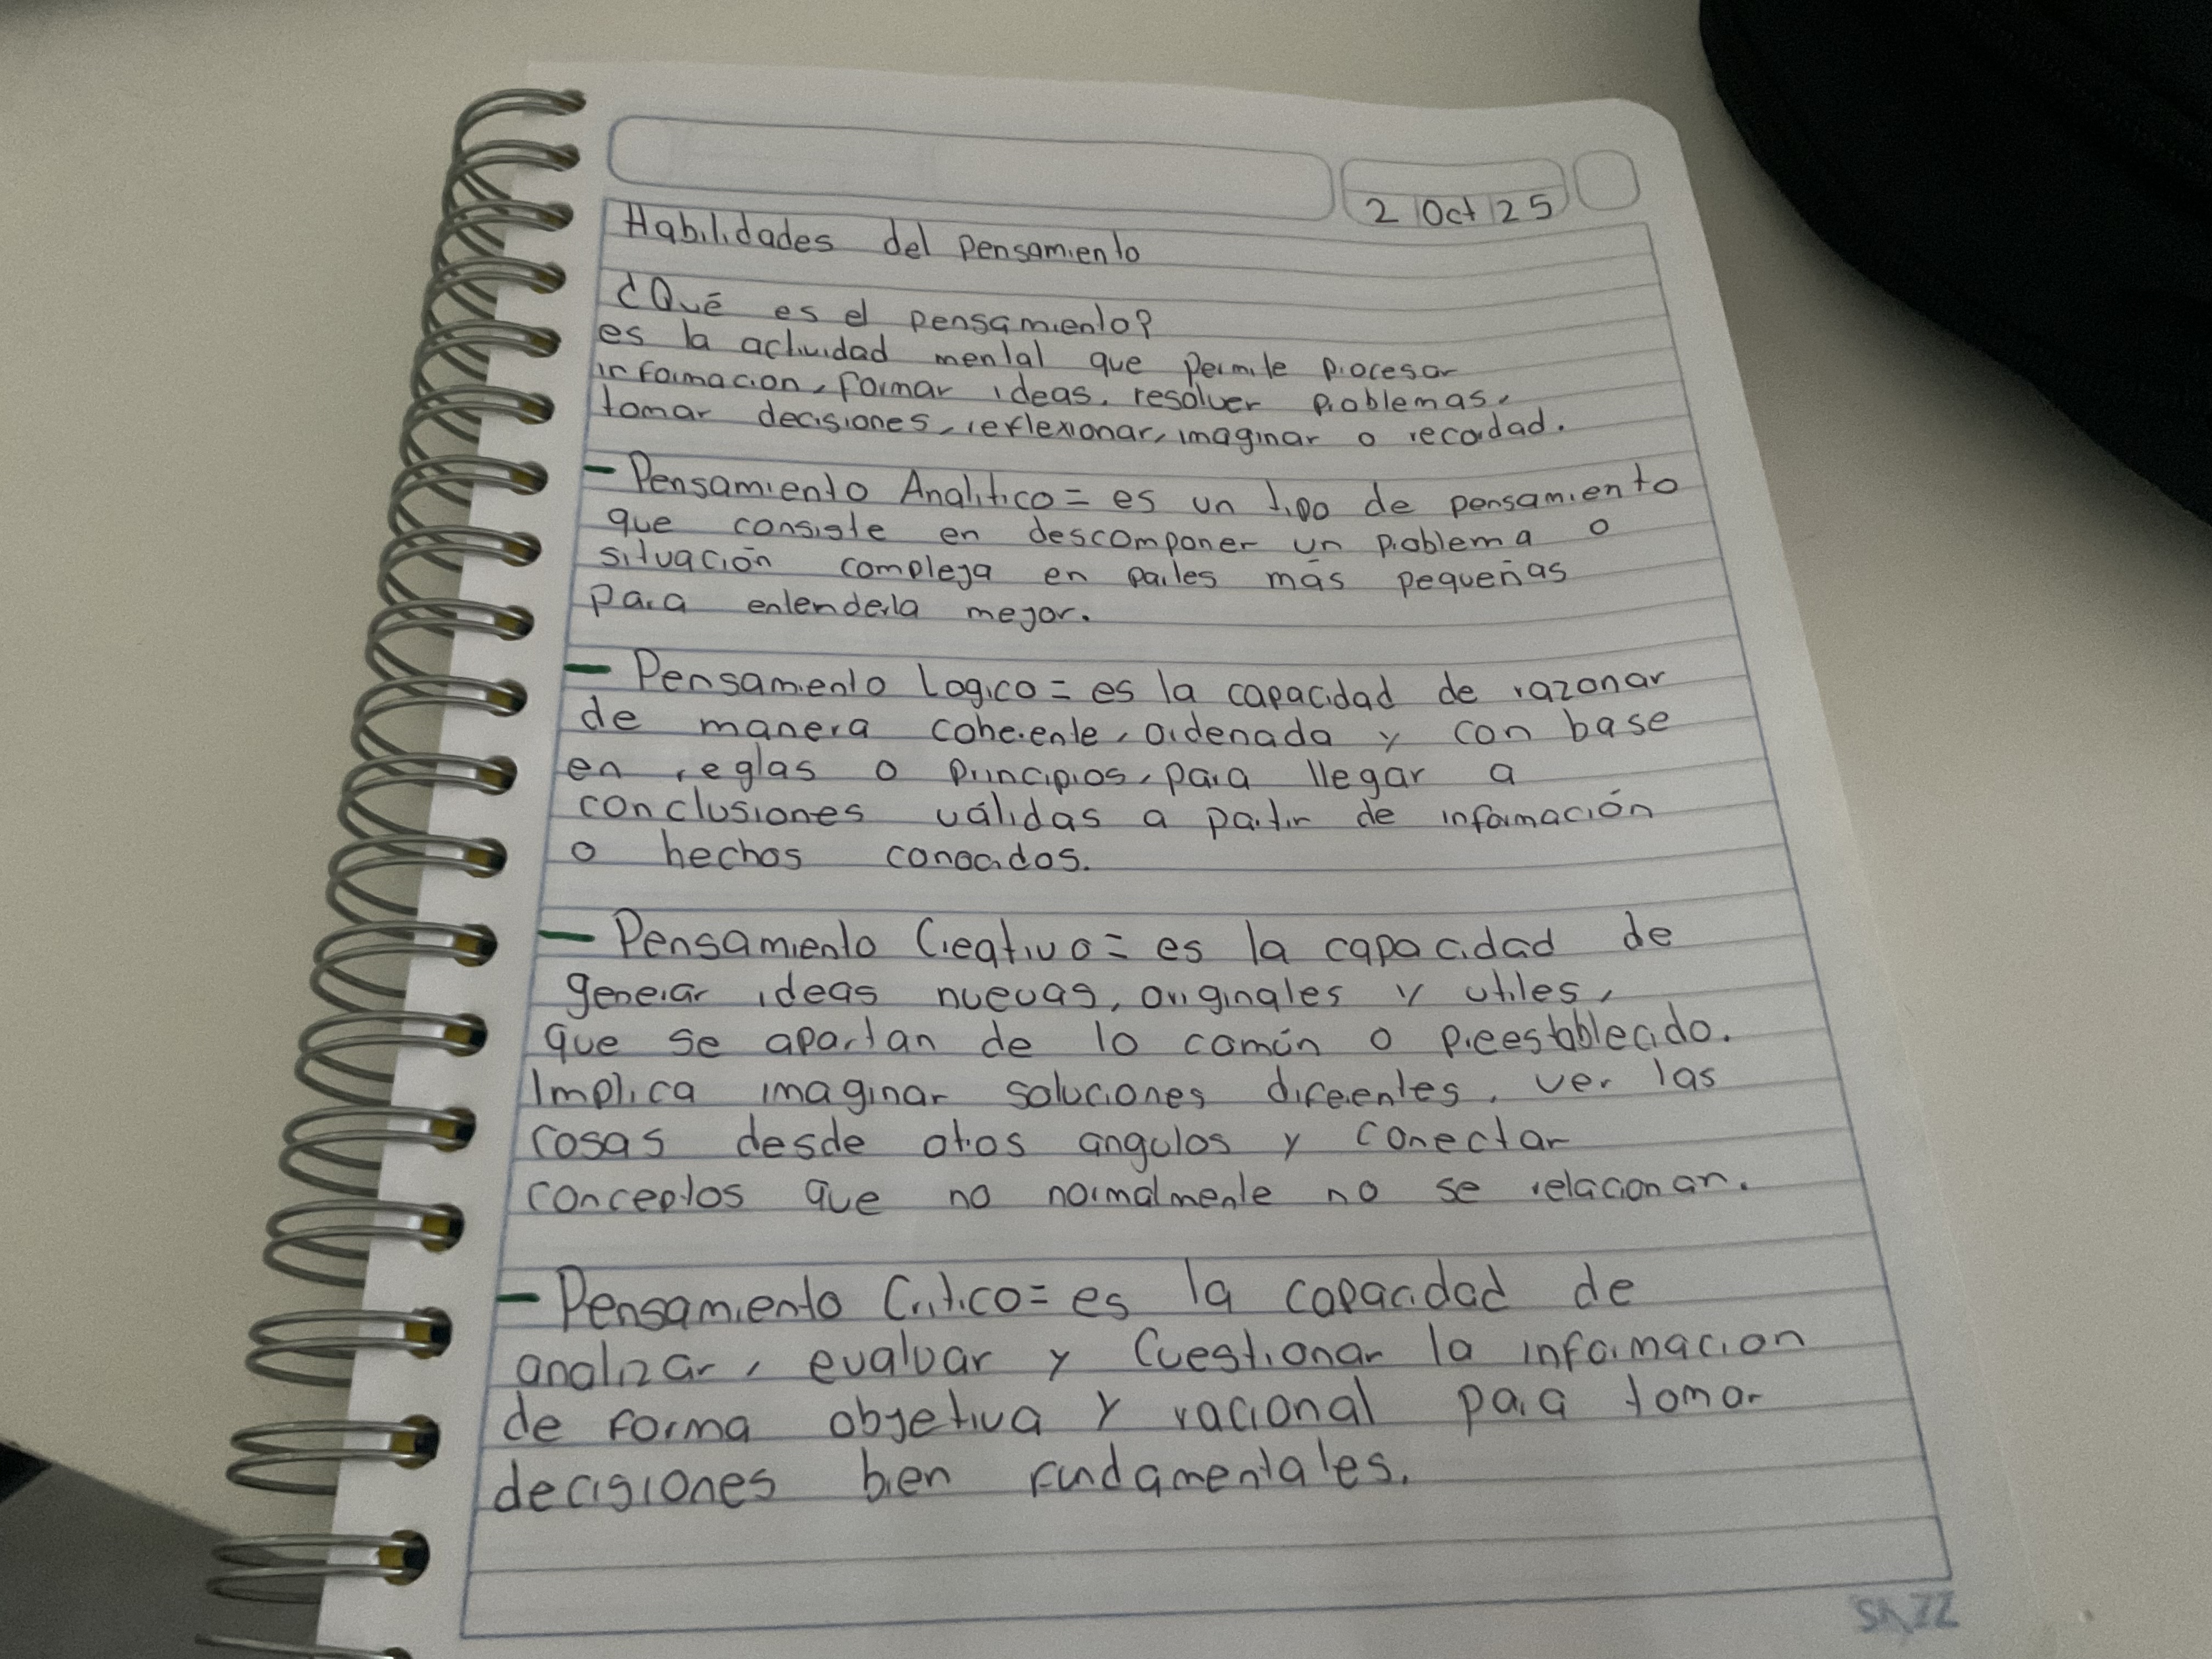 2 Oct 25
Habilidades del pensamiento
¿Qué es el pensamiento?
es la actividad mental que permite procesar
informacion, formar ideas, resolver problemas,
tomar decisiones, reflexionar, imaginar o recordad.
- Pensamiento Analitico = es un tipo de pensamiento
que consiste en descomponer un problema o
situación compleja en partes más pequeñas
para entenderla mejor.
- Pensamiento Logico = es la capacidad de razonar
de manera coherente, ordenada y con base
en reglas o principios, para llegar a
conclusiones válidas a partir de información
o hechos conocidos.
- Pensamiento Creativo = es la capacidad de
generar ideas nuevas, originales y utiles,
que se apartan de lo común o preestablecido.
Implica imaginar soluciones diferentes, ver las
cosas desde otros angulos y conectar
conceptos que no normalmente no se relacionan.
- Pensamiento Critico = es la capacidad de
analizar, evaluar y Cuestionar la informacion
de forma objetiva y racional para tomar
decisiones bien fundamentales.